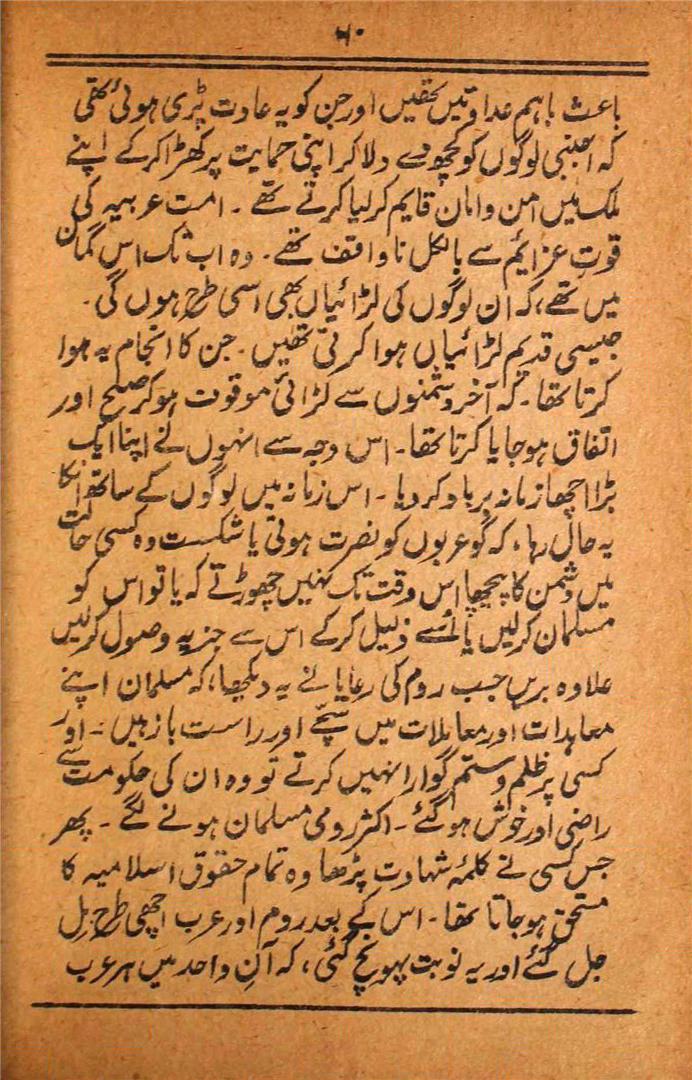 ۶۰
باعث باہم عداوتیں تھیں اور جن کو یہ عادت پڑی ہوئی تھی
کہ اجنبی لوگوں کو کچھ دے دلا کر اپنی حمایت پر کھڑا کر کے اپنے
ملک میں امن و امان قایم کر لیا کرتے تھے ۔ امت عربیہ کی
قوت عزایم سے بالکل ناواقف تھے ۔ وہ اب تک اس گمان
میں تھے، کہ ان لوگوں کی لڑائیاں بھی اسی طرح ہوں گی ۔
جیسی قدیم لڑائیاں ہوا کرتی تھیں ۔ جن کا انجام یہ ہوا
کرتا تھا ۔ کہ آخر دشمنوں سے لڑائی موقوف ہو کر صلح اور
اتفاق ہو جایا کرتا تھا ۔ اس وجہ سے انہوں نے اپنا ایک
بڑا اچھا زمانہ برباد کر دیا ۔ اس زمانہ میں لوگوں کے ساتھ انکا
یہ حال رہا، کہ گو عربوں کو نصرت ہوتی یا شکست وہ کسی حالت
میں دشمن کا پیچھا اس وقت تک نہیں چھوڑتے کہ یا تو اس کو
مسلمان کر لیں یا اُسے ذلیل کر کے اس سے جزیہ وصول کر لیں
علاوہ بریں جب روم کی رعایا نے یہ دیکھا، کہ مسلمان اپنے
معاہدات اور معاملات میں سچے اور راست باز ہیں ۔ اور
کسی پر ظلم و ستم گوارا نہیں کرتے تو وہ ان کی حکومت سے
راضی اور خوش ہو گئے ۔ اکثر رومی مسلمان ہونے لگے ۔ پھر
جس کسی نے کلمۂ شہادت پڑھا وہ تمام حقوق اسلامیہ کا
مستحق ہو جاتا تھا ۔ اس کے بعد روم اور عرب اچھی طرح مل
جل گئے اور یہ نوبت پہونچ گئی، کہ آنِ واحد میں ہر عرب